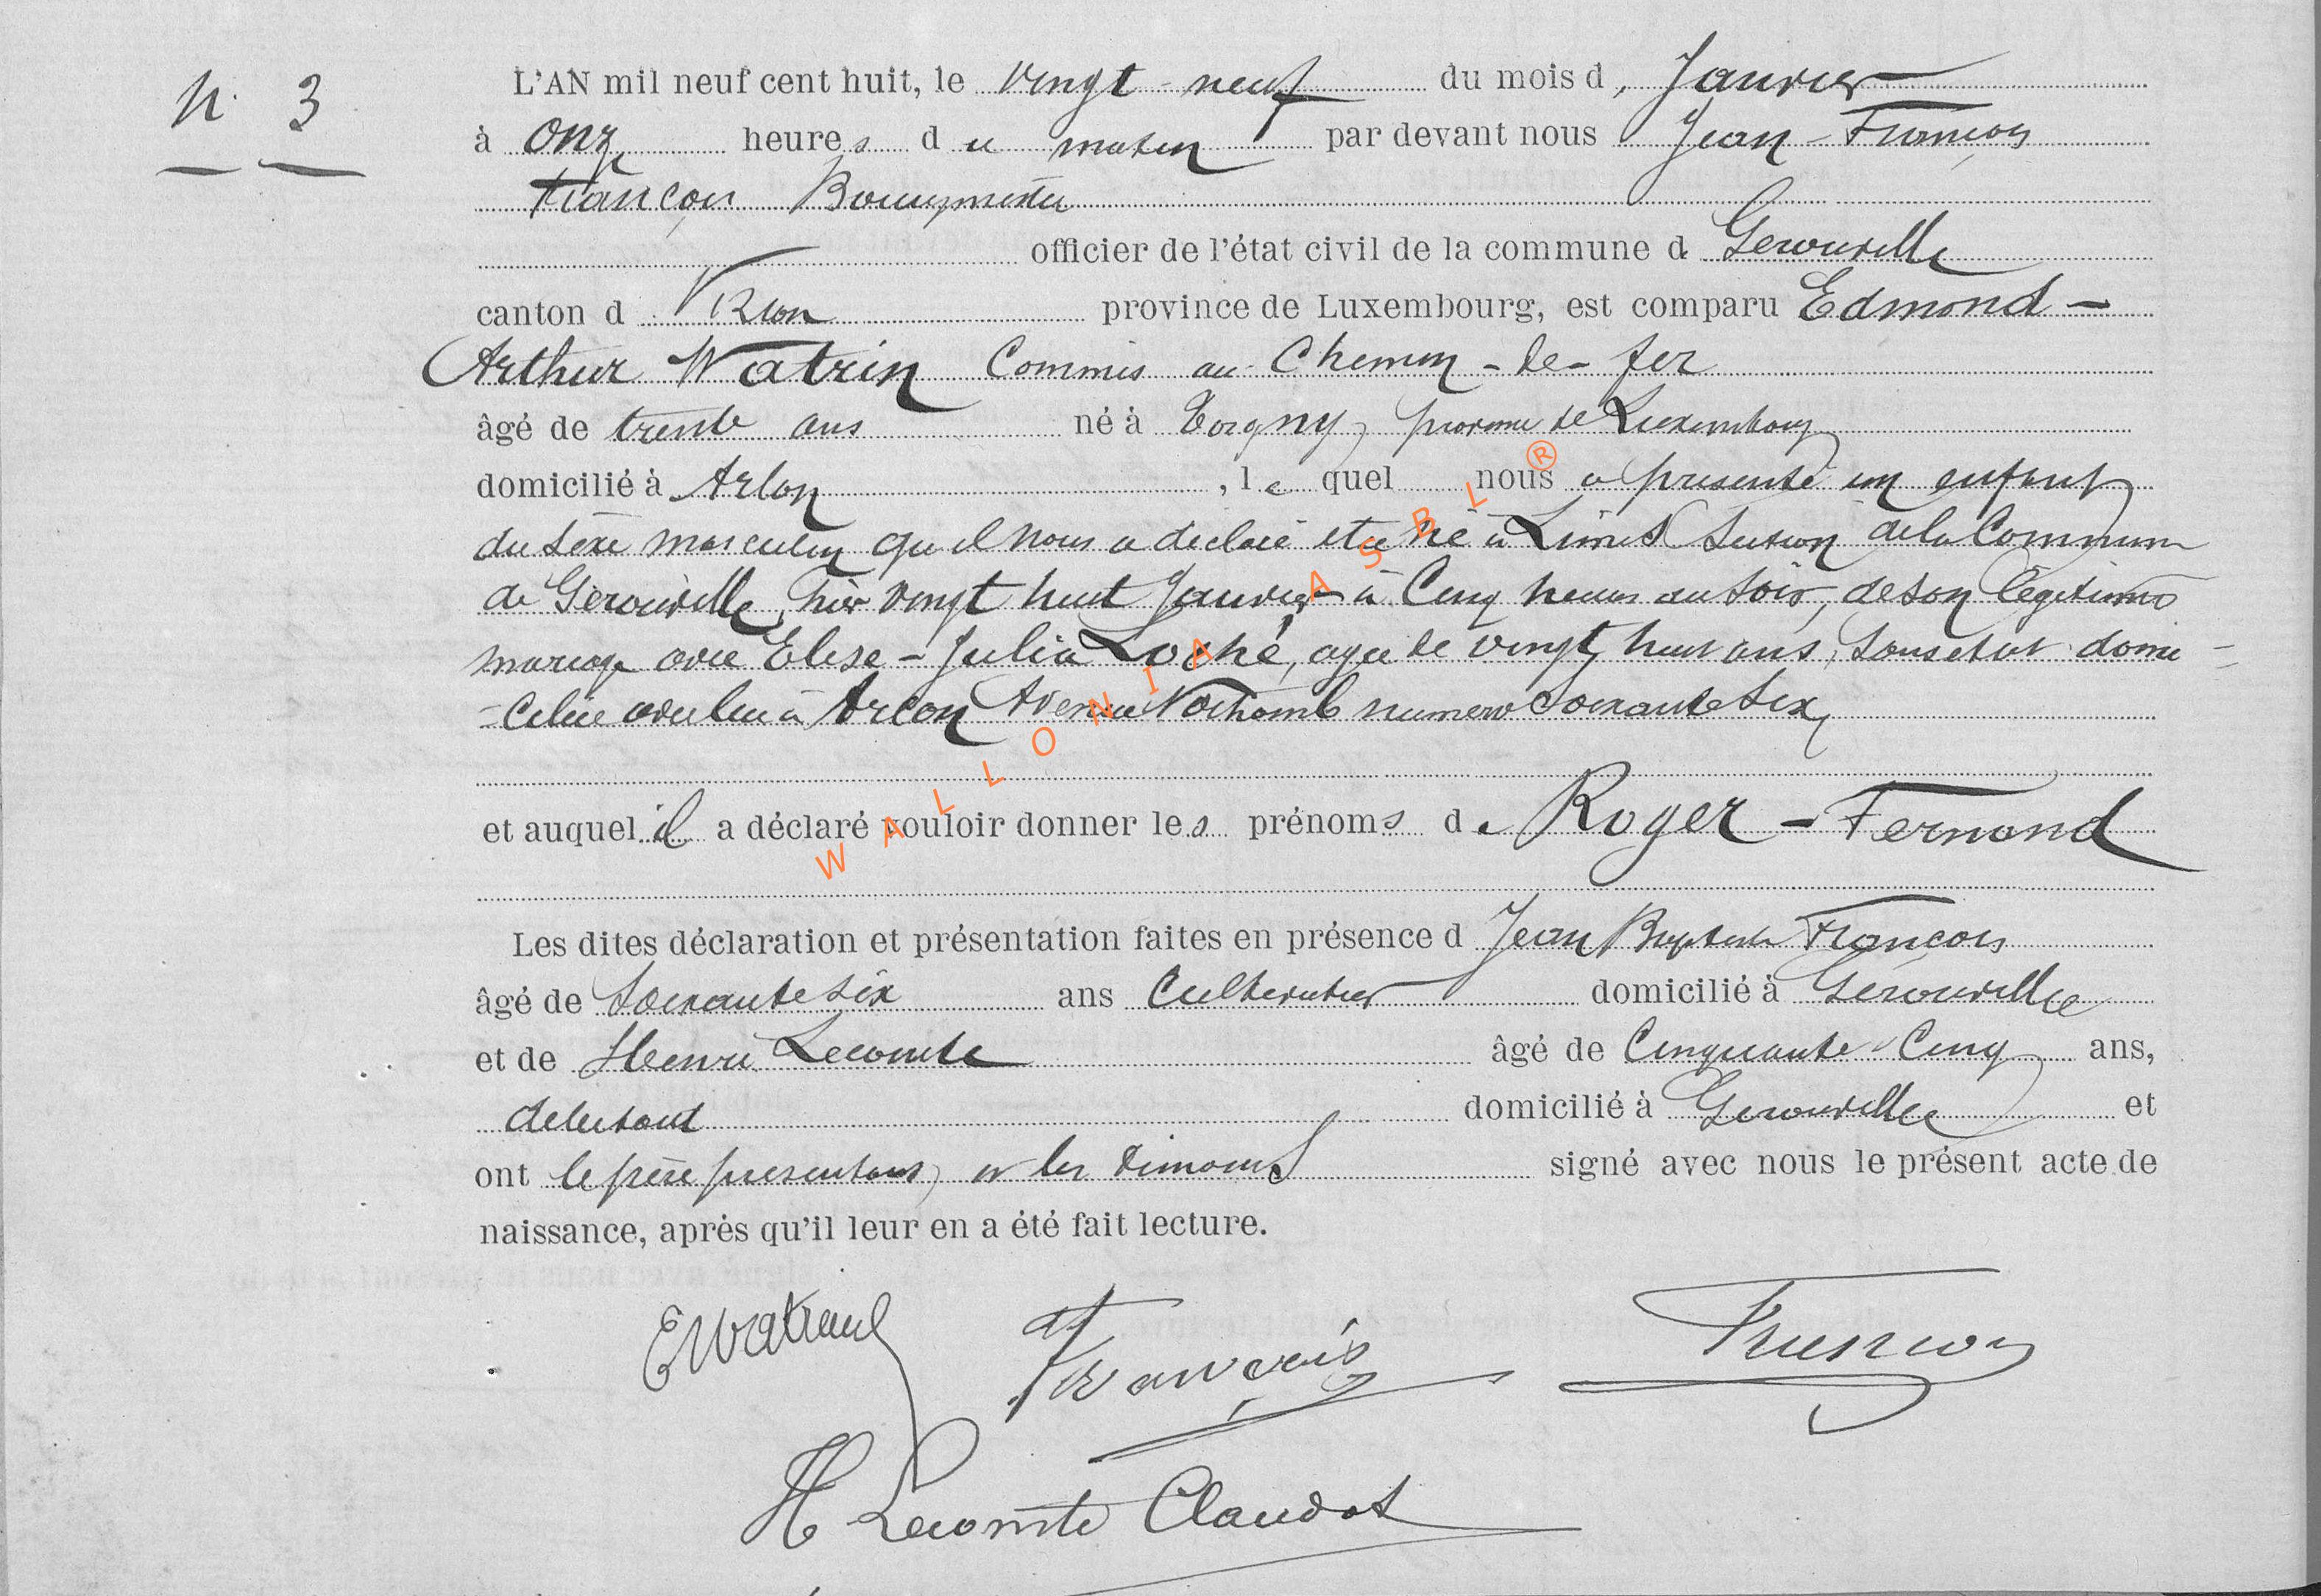 N. 3
L'AN mil neuf cent huit, le vingt-neuf du mois d, Janvier
à onze heures du matin par devant nous Jean-François
François Bourgmestre
officier de l'état civil de la commune d. Gerouville
canton d Virton province de Luxembourg, est comparu Edmond-
Arthur Watrin Commis au Chemin-de-fer
âgé de trente ans né à Torgny, province de Luxembourg
domicilié à Arlon, lequel nous a présenté un enfant
du sexe masculin qu'il nous a déclaré etre né à Limes Section de la Commune
de Gerouville, hier vingt huit Janvier à Cinq heures du soir, de son légitime
mariage avec Elise-Julia Loché, agée de vingt huit ans, sans etat domi-
-ciliée avec lui à Arlon Avenue Nothomb numero soixante six,
et auquel il a déclaré vouloir donner les prénoms de Roger-Fernand
Les dites déclaration et présentation faites en présence d Jean Baptiste François
âgé de soixante six ans Cultivateur domicilié à Gerouville
et de Henri Lecomte âgé de Cinquante-Cinq ans,
debitant domicilié à Gerouville et
ont le père présentant, et les témoins signé avec nous le présent acte de
naissance, après qu'il leur en a été fait lecture.
EWatrin François François
H Lecomte Claudot
WALLONIA ASBL ®